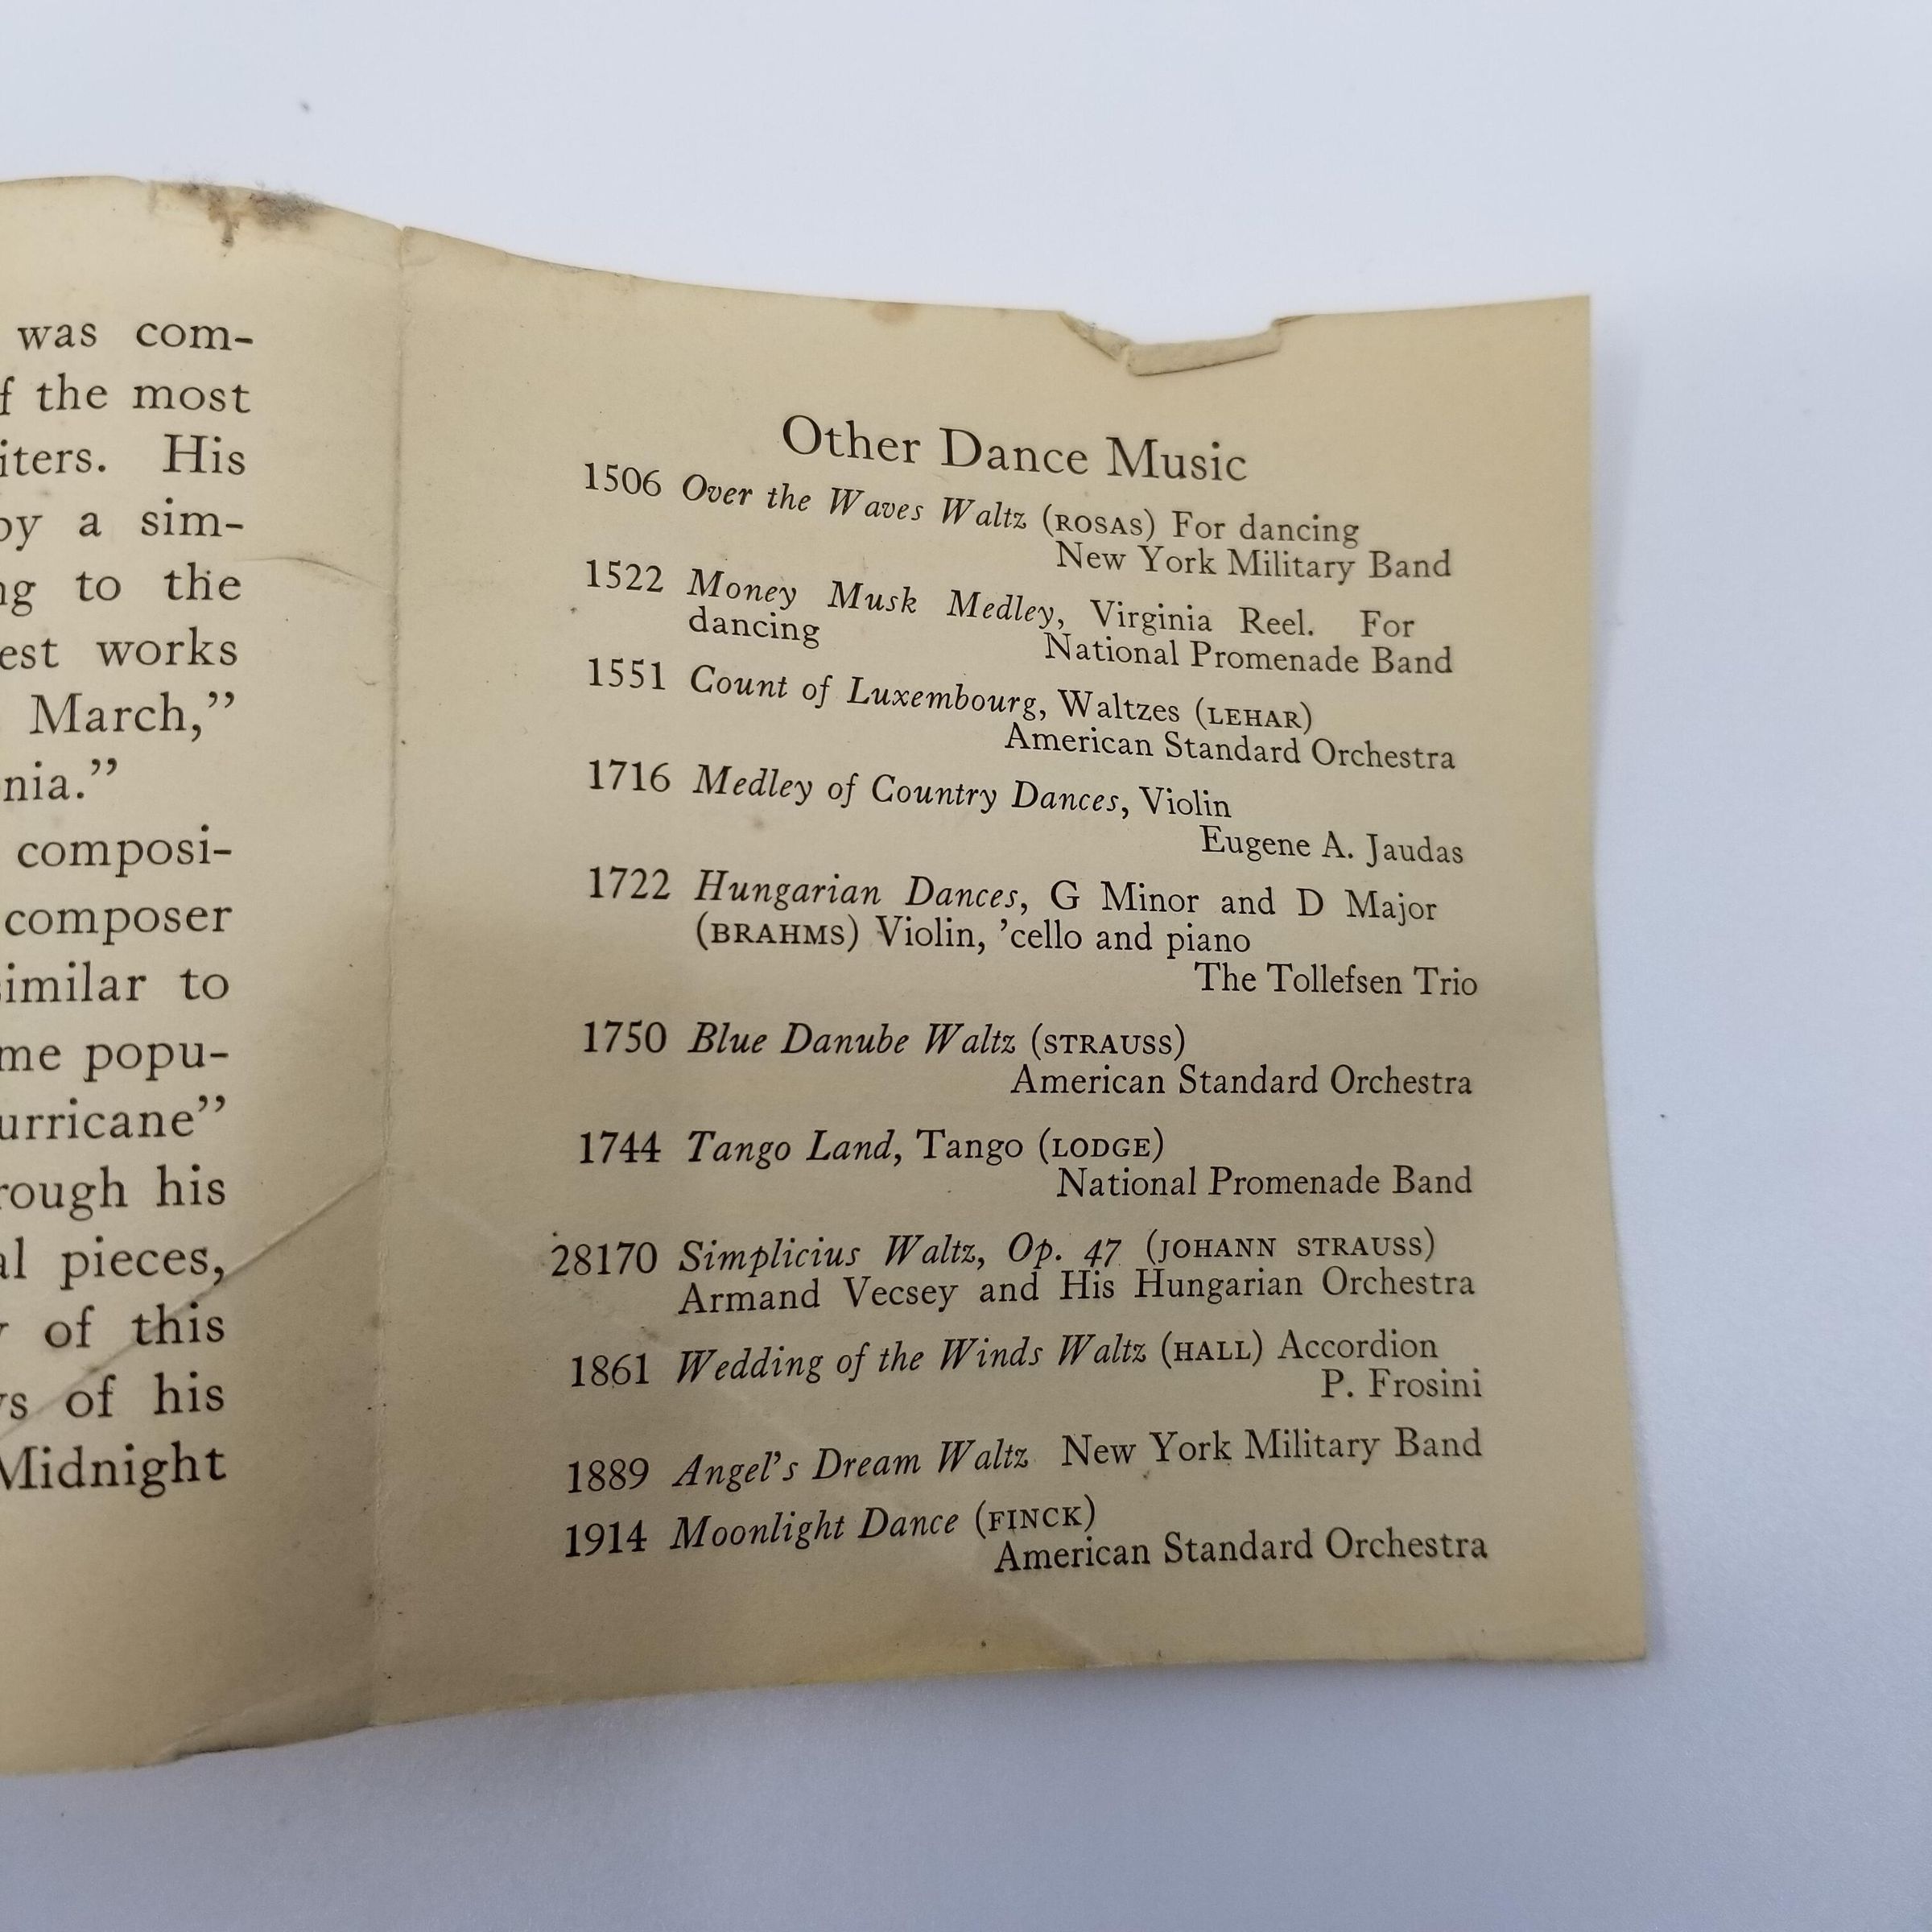 was com-
the most
His
a sim-
to the
works
March,"
composi-
composer
to
popu-
his
pieces,
of this
of his
Midnight
Other Dance Music
1506 Over the Waves Waltz (ROSAS) For dancing
New York Military Band
1522 Money Musk Medley, Virginia Reel. For
dancing National Promenade Band
1551 Count of Luxembourg, Waltzes (LEHAR)
American Standard Orchestra
1716 Medley of Country Dances, Violin
Eugene A. Jaudas
1722 Hungarian Dances, G Minor and D Major
(BRAHMS) Violin, 'cello and piano
The Tollefsen Trio
1750 Blue Danube Waltz (STRAUSS)
American Standard Orchestra
1744 Tango Land, Tango (LODGE)
National Promenade Band
28170 Simplicius Waltz, Op. 47 (JOHANN STRAUSS)
Armand Vecsey and His Hungarian Orchestra
1861 Wedding of the Winds Waltz (HALL) Accordion
P. Frosini
1889 Angel's Dream Waltz New York Military Band
1914 Moonlight Dance (FINCK)
American Standard Orchestra